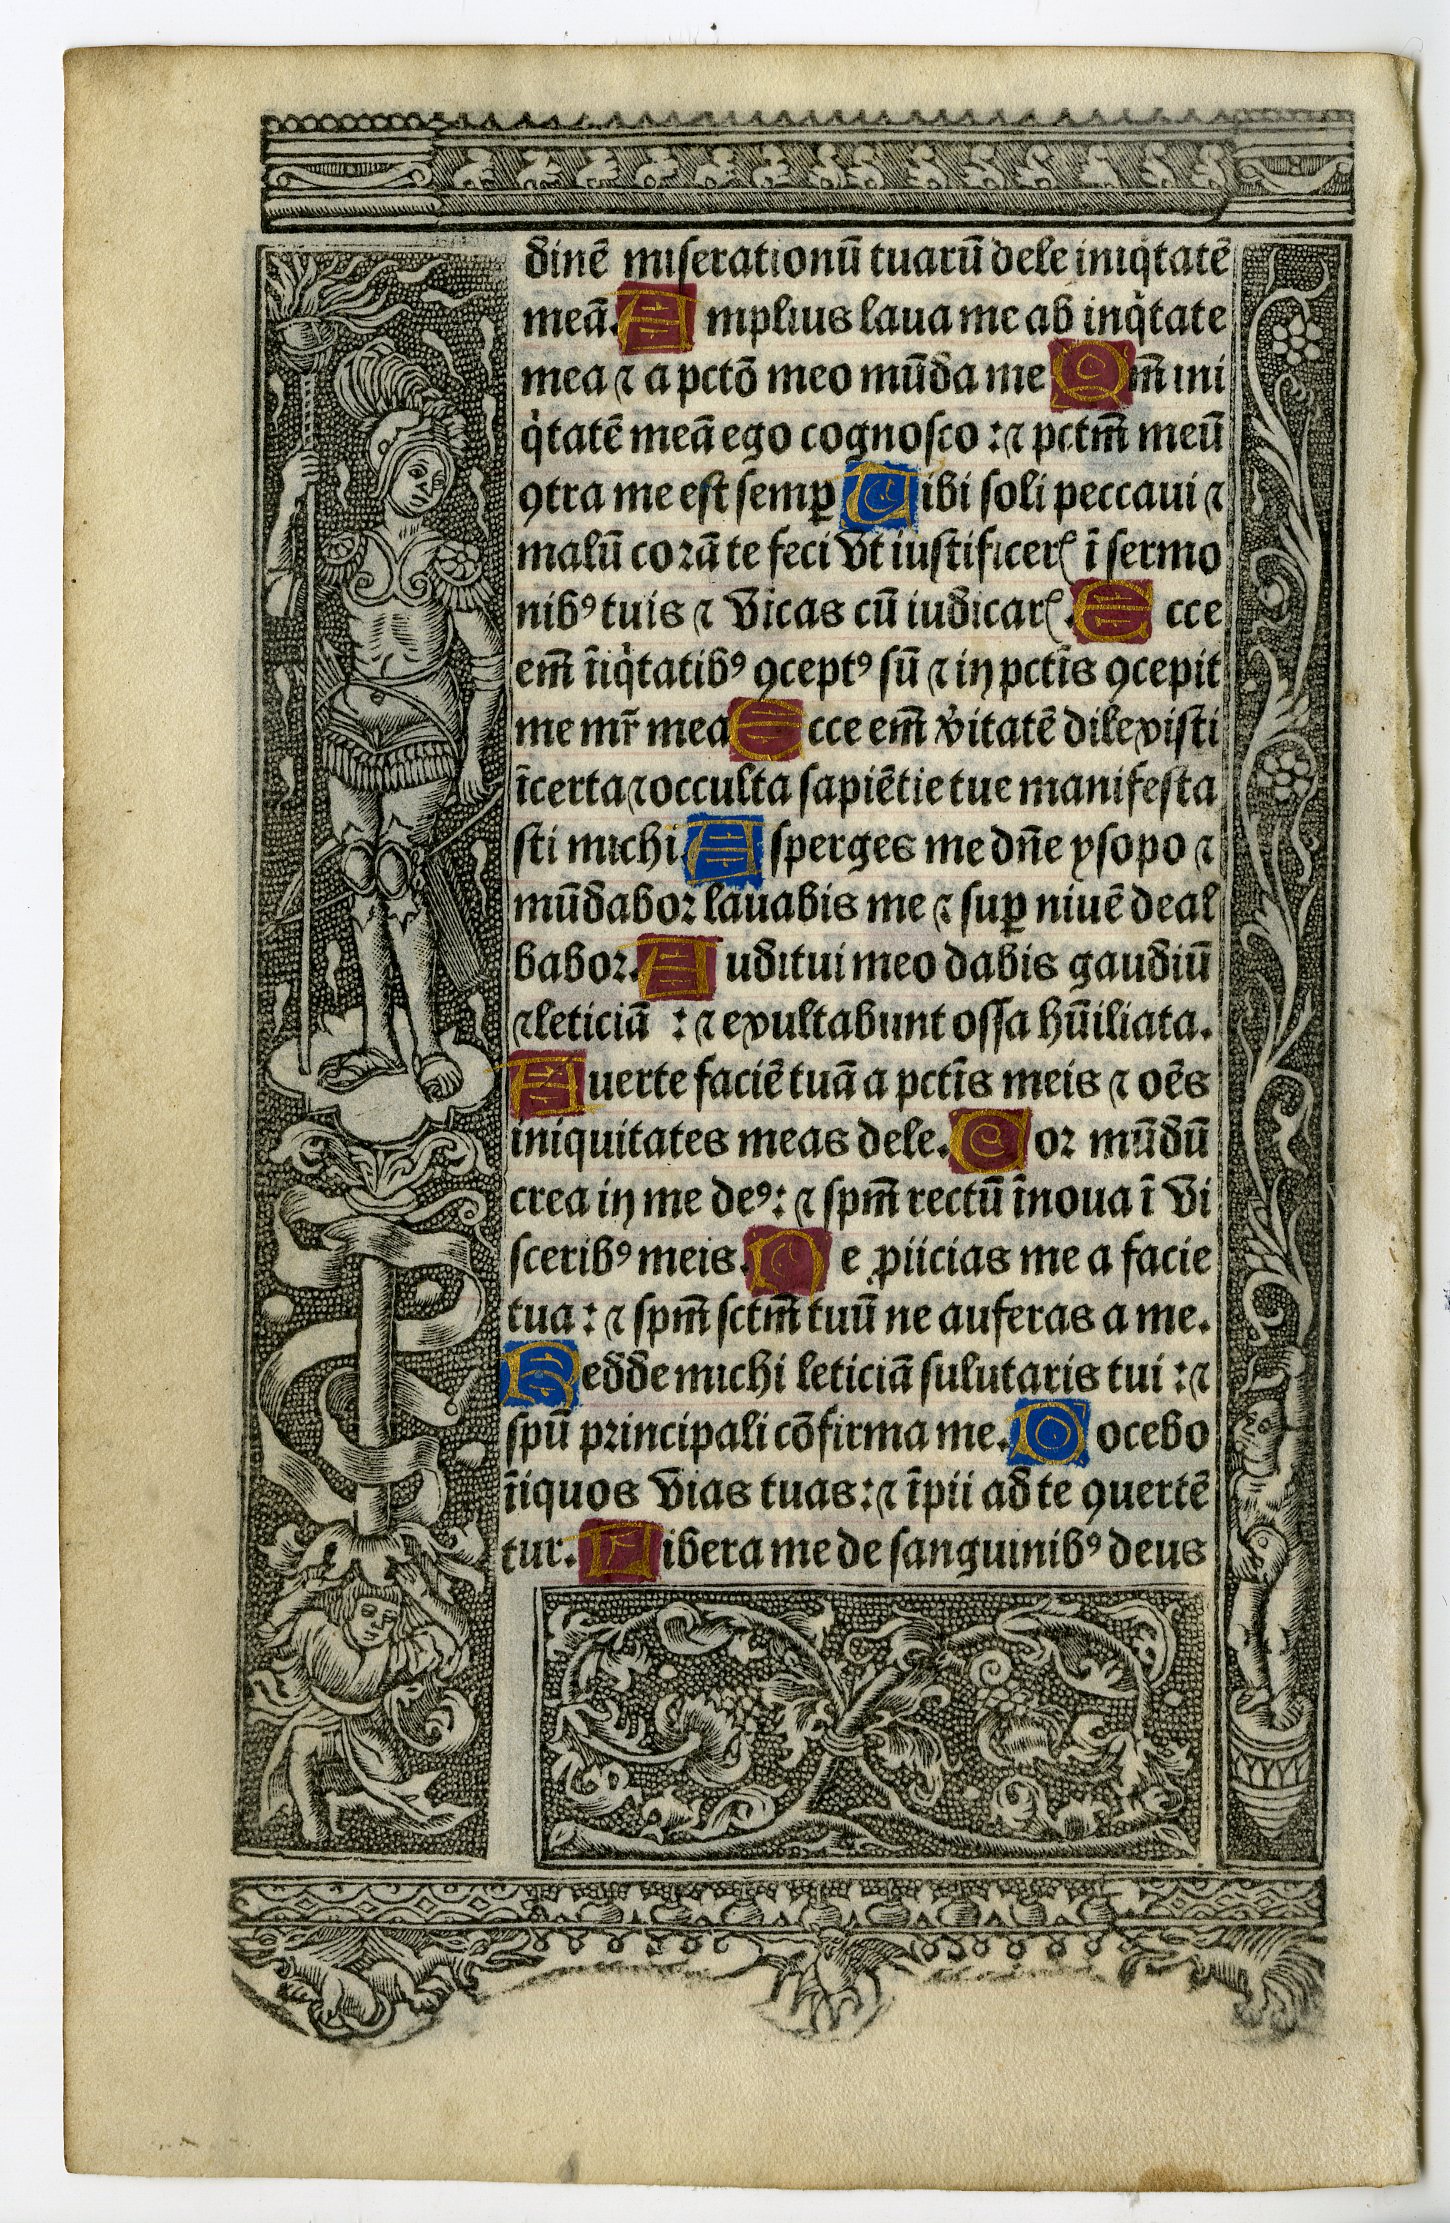 dinē miserationū tuarū dele iniqͥtatē
meā. Amplius laua me ab inqͥtate
mea ⁊ a pctō meo mūda me Qm̄ ini
qͥtatē meā ego cognosco : ⁊ pctm̄ meū
ꝯtra me est semꝑ Tibi soli peccaui ⁊
malū corā te feci vt iustificerꝭ ī sermo
nibꝰ tuis ⁊ v̄icas cū iudicarꝭ. Ecce
em̄ īiqͥtatibꝰ ꝯceptꝰ sū ⁊ in pctīs ꝯcepit
me mr̄ mea Ecce em̄ v̓itatē dilexisti
īcerta ⁊ occulta sapiētie tue manifesta
sti michi. Asperges me dn̄e ysopo ⁊
mūdabor lauabis me ⁊ suꝑ niuē deal
babor. Auditui meo dabis gaudiū
⁊ leticiā : ⁊ exultabunt ossa hūiliata.
Auerte faciē tuā a pctīs meis ⁊ oēs
iniquitates meas dele. Cor mūdū
crea in me deꝰ: ⁊ spm̄ rectū īnoua ī vi
sceribꝰ meis. Ne ꝓiicias me a facie
tua : ⁊ spm̄ sctm̄ tuū ne auferas a me.
Redde michi leticiā sulutaris tui : ⁊
spū principali cōfirma me. Docebo
īiquos v̄ias tuas : ⁊ īpii ad te ꝯuertē
tur. Libera me de sanguinibꝰ deus